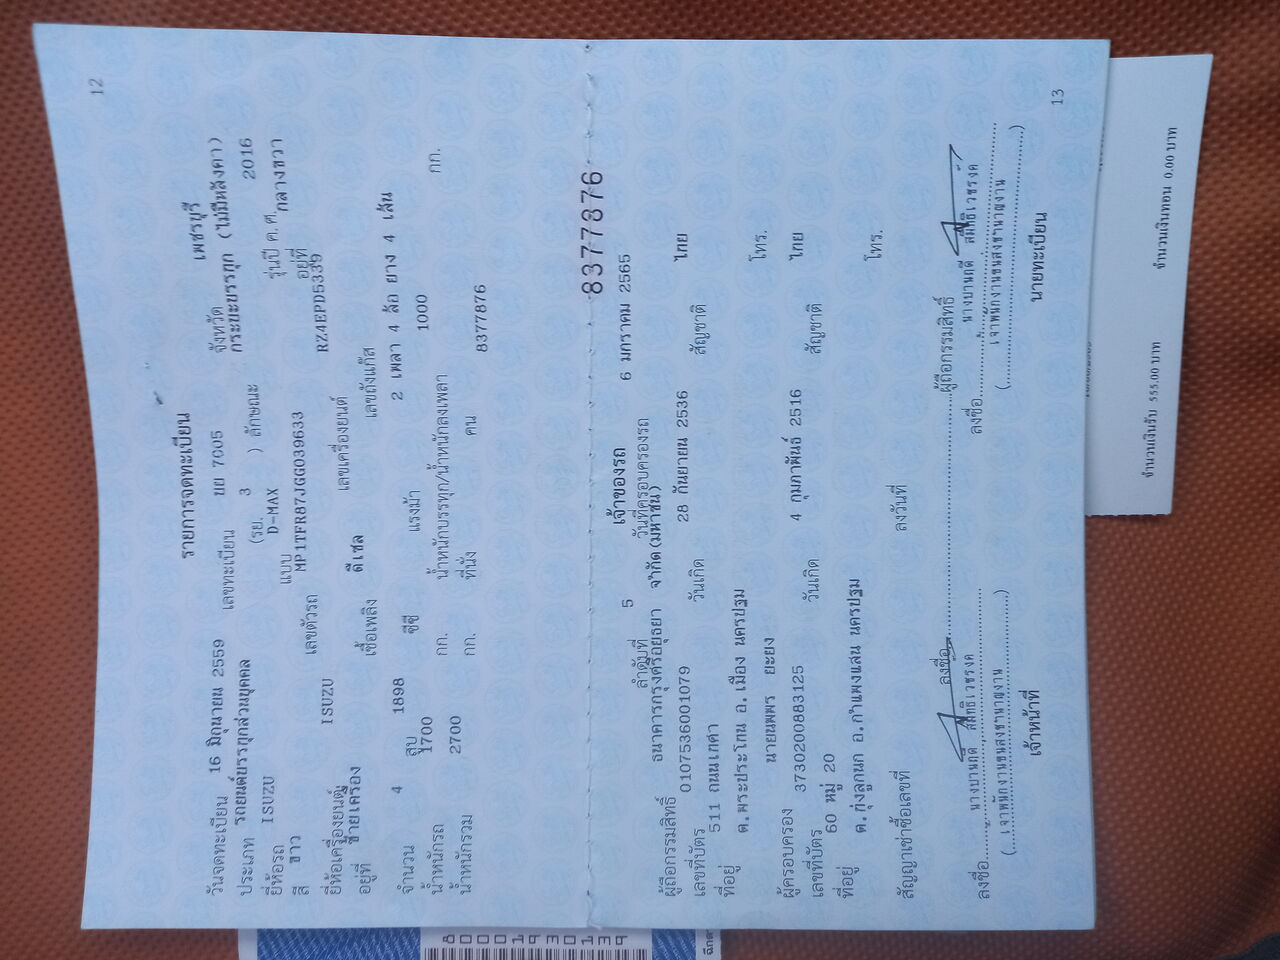 12
รายการจดทะเบียน
วันจดทะเบียน 16 มิถุนายน 2559 เลขทะเบียน บย 7005 จังหวัด เพชรบุรี
ประเภท รถยนต์บรรทุกส่วนบุคคล (รย. 3 ) ลักษณะ กระบะบรรทุก (ไม่มีหลังคา)
ยี่ห้อรถ ISUZU แบบ D-MAX รุ่นปี ค.ศ. 2016
สี ขาว เลขตัวรถ MP1TFR87JGG039633 อยู่ที่ กลางขวา
ยี่ห้อเครื่องยนต์ ISUZU เลขเครื่องยนต์ RZ4EPD5339
อยู่ที่ ซ้ายเครื่อง เชื้อเพลิง ดีเซล เลขถังแก๊ส
จำนวน 4 สูบ 1898 ซีซี แรงม้า 2 เพลา 4 ล้อ ยาง 4 เส้น
น้ำหนักรถ 1700 กก. น้ำหนักบรรทุก/น้ำหนักลงเพลา 1000 กก.
น้ำหนักรวม 2700 กก. ที่นั่ง คน
8377876
8377876
เจ้าของรถ
ลำดับที่ 5 วันที่ครอบครองรถ 6 มกราคม 2565
ผู้ถือกรรมสิทธิ์ ธนาคารกรุงศรีอยุธยา จำกัด(มหาชน)
เลขที่บัตร 0107536001079 วันเกิด 28 กันยายน 2536 สัญชาติ ไทย
ที่อยู่ 511 ถนนเทศา
ต.พระประโทน อ.เมือง นครปฐม โทร.
ผู้ครอบครอง นายนพพร ยะยง
เลขที่บัตร 3730200883125 วันเกิด 4 กุมภาพันธ์ 2516 สัญชาติ ไทย
ที่อยู่ 60 หมู่ 20
ต.ทุ่งลูกนก อ.กำแพงแสน นครปฐม โทร.
สัญญาเช่าซื้อเลขที่ ลงวันที่
ลงชื่อ ผู้ถือกรรมสิทธิ์
ลงชื่อ นางบานฤดี สัมฤทธิเวชรงค ลงชื่อ นางบานฤดี สัมฤทธิเวชรงค
(เจ้าพนักงานขนส่งชำนาญงาน) (เจ้าพนักงานขนส่งชำนาญงาน)
เจ้าหน้าที่ นายทะเบียน
13
จำนวนเงินรับ 555.00 บาท จำนวนเงินทอน 0.00 บาท